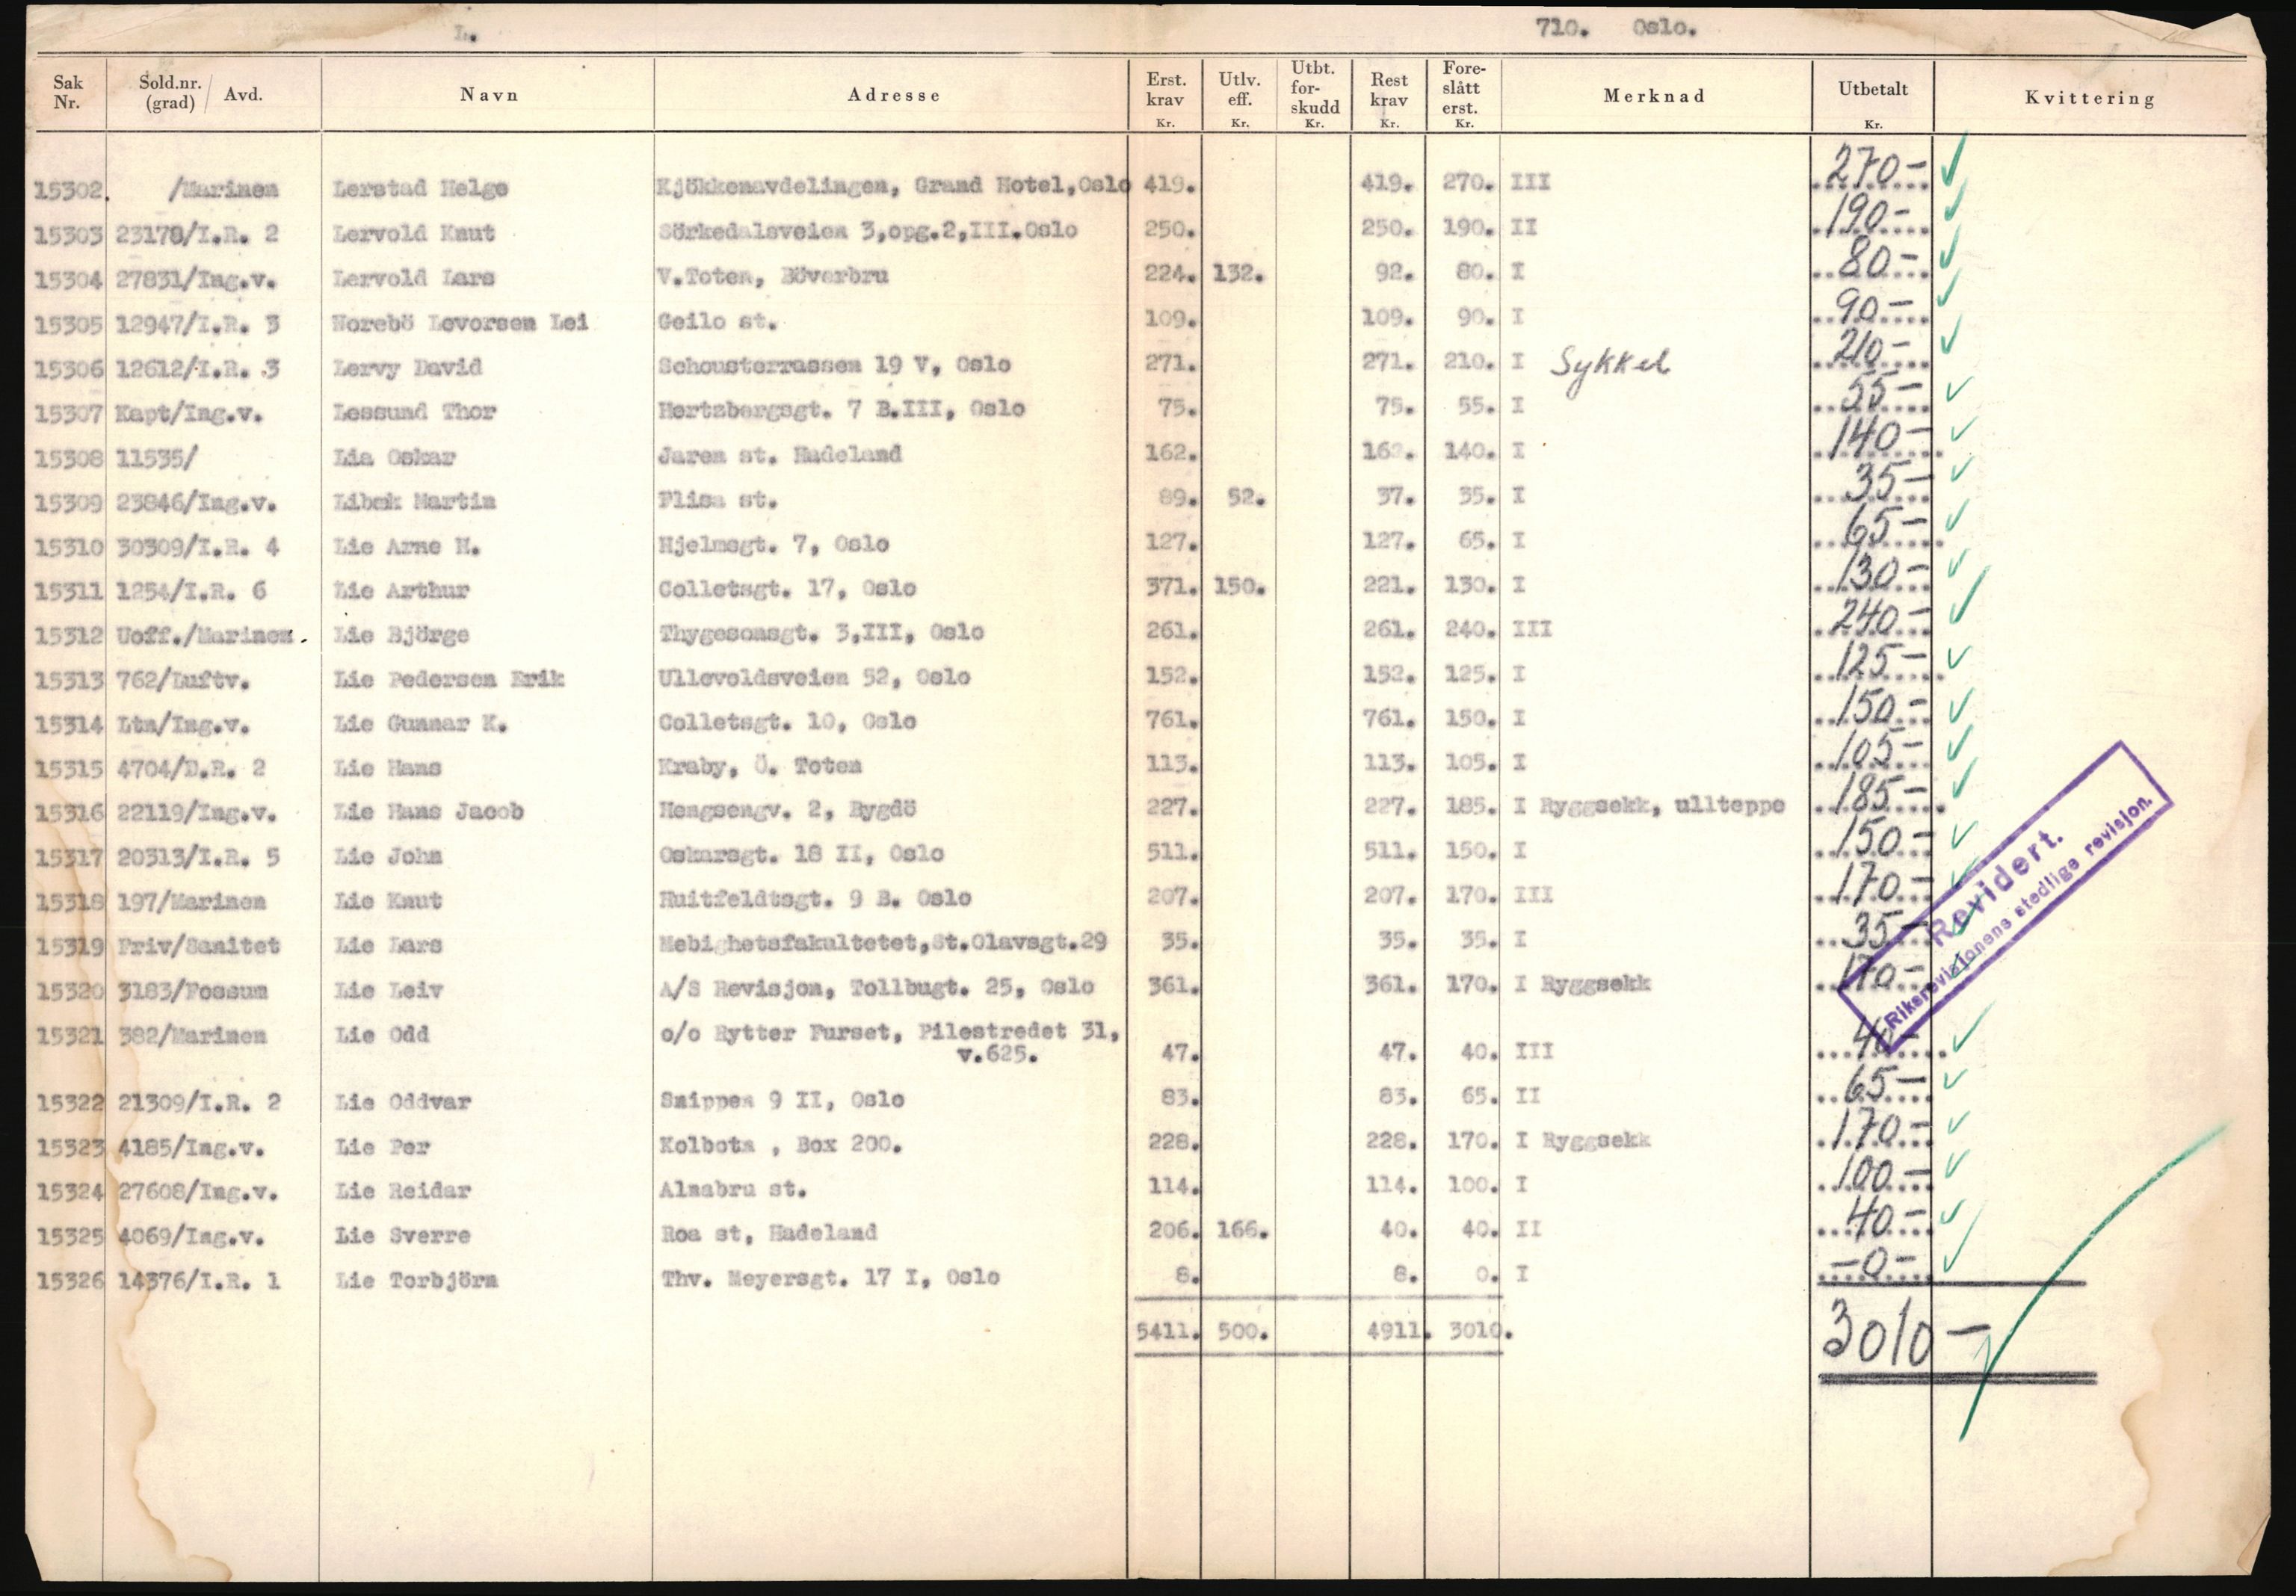 L. 710. Oslo.
Sak Nr. Sold.nr. (grad) / Avd. Navn Adresse Erst. krav Kr. Utlv. eff. Kr. Utbt. for- skudd Kr. Rest krav Kr. Fore- slått erst. Kr. Merknad Utbetalt Kr. Kvittering
15302. /Marinen Lerstad Helge Kjökkenavdelingen, Grand Hotel,Oslo 419. 419. 270. III 270-
15303 23178/I.R. 2 Lervold Knut Sörkedalsveien 3,opg.2,III.Oslo 250. 250. 190. II 190-
15304 27831/Ing.v. Lervold Lars V.Toten, Böverbru 224. 132. 92. 80. I 80-
15305 12947/I.R. 3 Norebö Levorsen Lei Geilo st. 109. 109. 90. I 90-
15306 12612/I.R. 3 Lervy David Schousterrassen 19 V, Oslo 271. 271. 210. I Sykkel 210-
15307 Kapt/Ing.v. Lessund Thor Hertzbergsgt. 7 B.III, Oslo 75. 75. 55. I 55-
15308 11535/ Lia Oskar Jaren st. Hadeland 162. 162. 140. I 140-
15309 23846/Ing.v. Libek Martin Flisa st. 89. 52. 37. 35. I 35-
15310 30309/I.R. 4 Lie Arne H. Hjelmsgt. 7, Oslo 127. 127. 65. I 65-
15311 1254/I.R. 6 Lie Arthur Colletsgt. 17, Oslo 371. 150. 221. 130. I 130-
15312 Uoff./Marinen. Lie Björge Thygesonsgt. 3,III, Oslo 261. 261. 240. III 240-
15313 762/Luftv. Lie Pedersen Erik Ullevoldsveien 52, Oslo 152. 152. 125. I 125-
15314 Ltn/Ing.v. Lie Gunnar K. Colletsgt. 10, Oslo 761. 761. 150. I 150-
15315 4704/D.R. 2 Lie Hans Kraby, Ö. Toten 113. 113. 105. I 105-
15316 22119/Ing.v. Lie Hans Jacob Hengsengv. 2, Bygdö 227. 227. 185. I Ryggsekk, ullteppe 185-
15317 20313/I.R. 5 Lie John Oskarsgt. 18 II, Oslo 511. 511. 150. I 150-
15318 197/Marinen Lie Knut Huitfeldtsgt. 9 B. Oslo 207. 207. 170. III 170-
15319 Friv/Sanitet Lie Lars Mebighetsfakultetet,St.Olavsgt.29 35. 35. 35. I 35-
15320 3183/Fossum Lie Leiv A/S Revisjon, Tollbugt. 25, Oslo 361. 361. 170. I Ryggsekk 170-
15321 382/Marinen Lie Odd o/o Rytter Furset, Pilestredet 31,
v.625. 47. 47. 40. III 40-
15322 21309/I.R. 2 Lie Oddvar Snippen 9 II, Oslo 83. 83. 65. II 65-
15323 4185/Ing.v. Lie Per Kolbotn , Box 200. 228. 228. 170. I Ryggsekk 170-
15324 27608/Ing.v. Lie Reidar Alnabru st. 114. 114. 100. I 100-
15325 4069/Ing.v. Lie Sverre Roa st, Hadeland 206. 166. 40. 40. II 40-
15326 14376/I.R. 1 Lie Torbjörn Thv. Meyersgt. 17 I, Oslo 8. 8. 0. I -0-
5411. 500. 4911. 3010. 3010-
Revidert.
Riksrevisjonens stedlige revisjon.